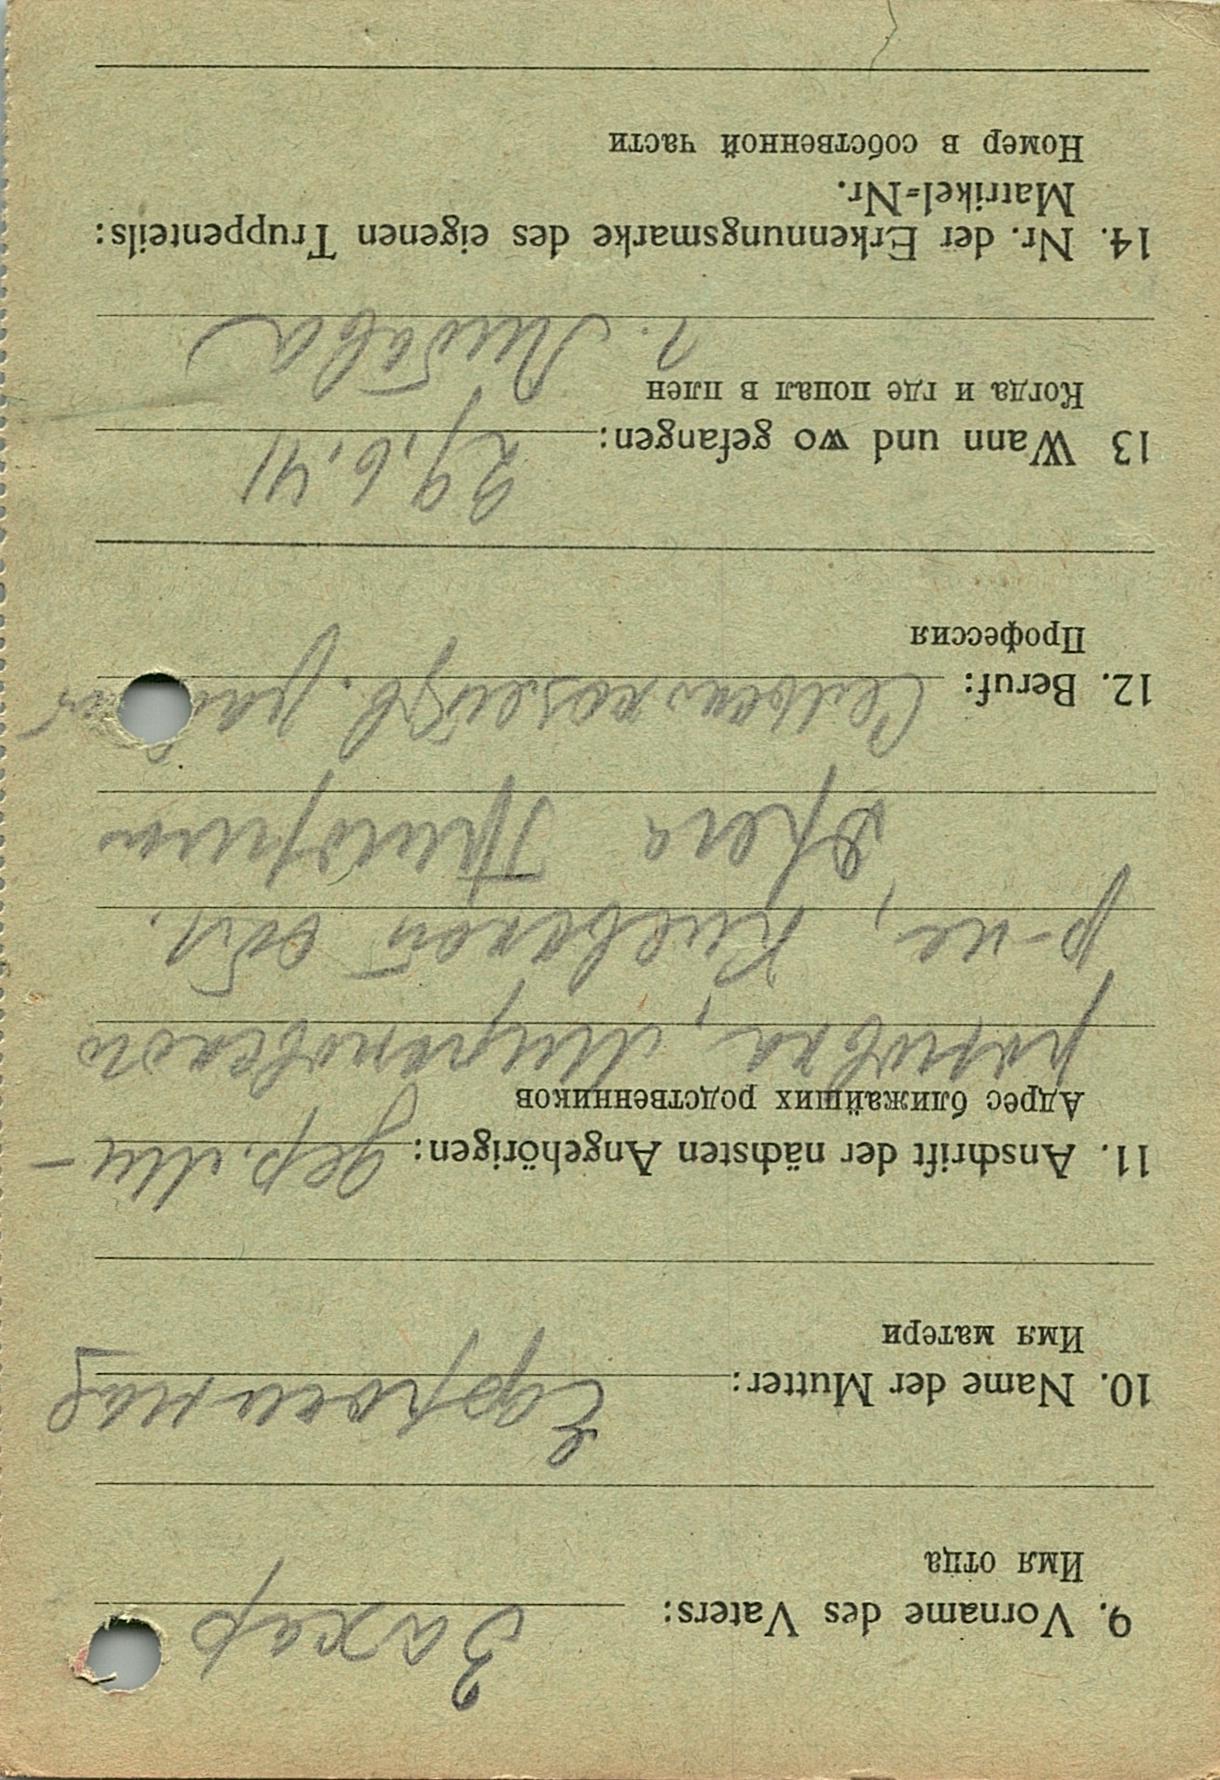 9. Vorname des Vaters: Захар
Имя отца
10. Name der Mutter: Ефросиния
Имя матери
11. Anschrift der nächsten Angehörigen: дер. Ми-
Адрес ближайших родственников
роновка, Мироновском
р-не, Киевской обл.
12. Beruf: Сельскохозяйств. рабоч
Профессия
13 Wann und wo gefangen: 29.6.41
Когда и где попал в плен
г. Либава
14. Nr. der Erkennungsmarke des eigenen Truppenteils:
Matrikel-Nr.
Номер в собственной части